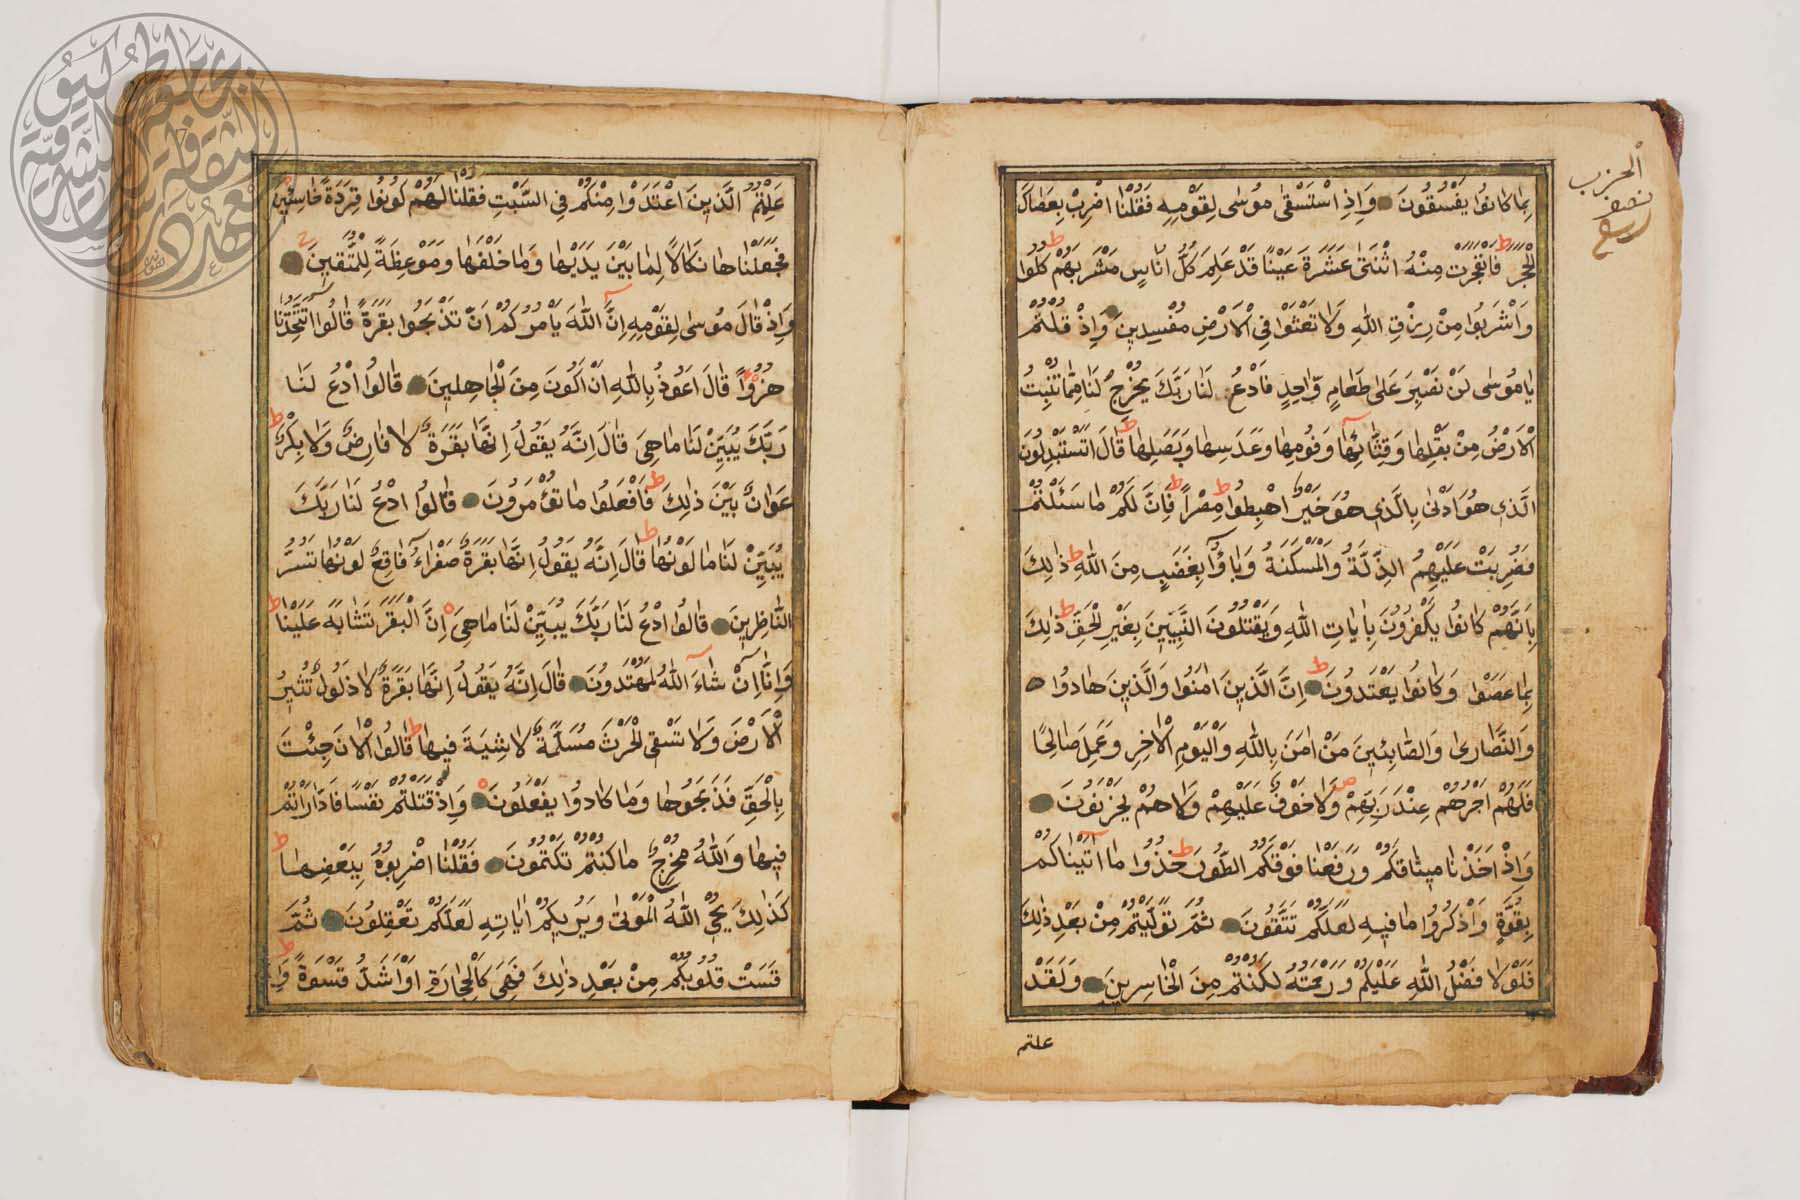 بِمَا كَانُوا يَفْسُقُونَ وَاِذِ اسْتَسْقٰى مُوسٰى لِقَوْمِهِ فَقُلْنَا اضْرِبْ بِعَصَاكَ
الْحَجَرَ فَانْفَجَرَتْ مِنْهُ اثْنَتَىْ عَشَرَةَ عَيْنًا قَدْ عَلِمَ كُلُّ اُنَاسٍ مَشْرَبَهُمْ كُلُوا
وَاشْرَبُوا مِنْ رِزْقِ اللّٰهِ وَلَا تَعْثَوْا فِي الْاَرْضِ مُفْسِدِينَ وَاِذْ قُلْتُمْ
يَا مُوسٰى لَنْ نَصْبِرَ عَلٰى طَعَامٍ وَّاحِدٍ فَادْعُ لَنَا رَبَّكَ يُخْرِجْ لَنَا مِمَّا تُنْبِتُ
الْاَرْضُ مِنْ بَقْلِهَا وَقِثَّائِهَا وَفُومِهَا وَعَدَسِهَا وَبَصَلِهَا قَالَ اَتَسْتَبْدِلُونَ
الَّذِي هُوَ اَدْنٰى بِالَّذِي هُوَ خَيْرٌ اهْبِطُوا مِصْرًا فَاِنَّ لَكُمْ مَا سَئَلْتُمْ
وَضُرِبَتْ عَلَيْهِمُ الذِّلَّةُ وَالْمَسْكَنَةُ وَبَاؤُا بِغَضَبٍ مِنَ اللّٰهِ ذٰلِكَ
بِاَنَّهُمْ كَانُوا يَكْفُرُونَ بِاٰيَاتِ اللّٰهِ وَيَقْتُلُونَ النَّبِيّٖنَ بِغَيْرِ الْحَقِّ ذٰلِكَ
بِمَا عَصَوْا وَكَانُوا يَعْتَدُونَ اِنَّ الَّذِينَ اٰمَنُوا وَالَّذِينَ هَادُوا
وَالنَّصَارٰى وَالصَّابِئِينَ مَنْ اٰمَنَ بِاللّٰهِ وَالْيَوْمِ الْاٰخِرِ وَعَمِلَ صَالِحًا
فَلَهُمْ اَجْرُهُمْ عِنْدَ رَبِّهِمْ وَلَا خَوْفٌ عَلَيْهِمْ وَلَا هُمْ يَحْزَنُونَ
وَاِذْ اَخَذْنَا مِيثَاقَكُمْ وَرَفَعْنَا فَوْقَكُمُ الطُّورَ خُذُوا مَا اٰتَيْنَاكُمْ
بِقُوَّةٍ وَاذْكُرُوا مَا فِيهِ لَعَلَّكُمْ تَتَّقُونَ ثُمَّ تَوَلَّيْتُمْ مِنْ بَعْدِ ذٰلِكَ
فَلَوْلَا فَضْلُ اللّٰهِ عَلَيْكُمْ وَرَحْمَتُهُ لَكُنْتُمْ مِنَ الْخَاسِرِينَ وَلَقَدْ
علمتم
الحزب
نصف
عَلِمْتُمُ الَّذِينَ اعْتَدَوْا مِنْكُمْ فِي السَّبْتِ فَقُلْنَا لَهُمْ كُونُوا قِرَدَةً خَاسِئِينَ
فَجَعَلْنَاهَا نَكَالًا لِمَا بَيْنَ يَدَيْهَا وَمَا خَلْفَهَا وَمَوْعِظَةً لِلْمُتَّقِينَ
وَاِذْ قَالَ مُوسٰى لِقَوْمِهِ اِنَّ اللّٰهَ يَاْمُرُكُمْ اَنْ تَذْبَحُوا بَقَرَةً قَالُوا اَتَتَّخِذُنَا
هُزُوًا قَالَ اَعُوذُ بِاللّٰهِ اَنْ اَكُونَ مِنَ الْجَاهِلِينَ قَالُوا ادْعُ لَنَا
رَبَّكَ يُبَيِّنْ لَنَا مَا هِيَ قَالَ اِنَّهُ يَقُولُ اِنَّهَا بَقَرَةٌ لَا فَارِضٌ وَلَا بِكْرٌ
عَوَانٌ بَيْنَ ذٰلِكَ فَافْعَلُوا مَا تُؤْمَرُونَ قَالُوا ادْعُ لَنَا رَبَّكَ
يُبَيِّنْ لَنَا مَا لَوْنُهَا قَالَ اِنَّهُ يَقُولُ اِنَّهَا بَقَرَةٌ صَفْرَاءُ فَاقِعٌ لَوْنُهَا تَسُرُّ
النَّاظِرِينَ قَالُوا ادْعُ لَنَا رَبَّكَ يُبَيِّنْ لَنَا مَا هِيَ اِنَّ الْبَقَرَ تَشَابَهَ عَلَيْنَا
وَاِنَّا اِنْ شَاءَ اللّٰهُ لَمُهْتَدُونَ قَالَ اِنَّهُ يَقُولُ اِنَّهَا بَقَرَةٌ لَا ذَلُولٌ تُثِيرُ
الْاَرْضَ وَلَا تَسْقِي الْحَرْثَ مُسَلَّمَةٌ لَا شِيَةَ فِيهَا قَالُوا الْاٰنَ جِئْتَ
بِالْحَقِّ فَذَبَحُوهَا وَمَا كَادُوا يَفْعَلُونَ وَاِذْ قَتَلْتُمْ نَفْسًا فَادَّارَاْتُمْ
فِيهَا وَاللّٰهُ مُخْرِجٌ مَا كُنْتُمْ تَكْتُمُونَ فَقُلْنَا اضْرِبُوهُ بِبَعْضِهَا
كَذٰلِكَ يُحْيِ اللّٰهُ الْمَوْتٰى وَيُرِيكُمْ اٰيَاتِهِ لَعَلَّكُمْ تَعْقِلُونَ ثُمَّ
قَسَتْ قُلُوبُكُمْ مِنْ بَعْدِ ذٰلِكَ فَهِيَ كَالْحِجَارَةِ اَوْ اَشَدُّ قَسْوَةً وَاِ